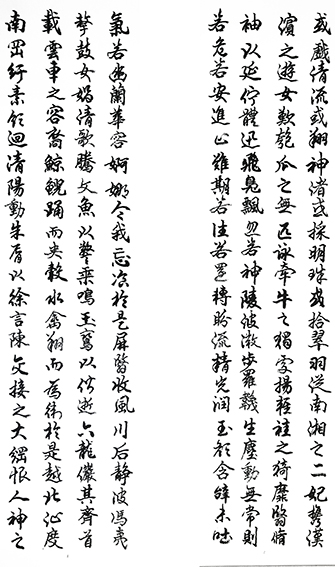 或戲清流或翔神渚或採明珠或拾翠羽從南湘之二妃攜漢
濱之遊女歎匏瓜之無匹詠牽牛之獨處揚輕袿之猗靡翳脩
袖以延佇體迅飛鳧飄忽若神陵波微步羅韈生塵動無常則
若危若安進止難期若往若還轉眄流精光潤玉顏含辭未吐
氣若幽蘭華容婀娜令我忘飡於是屏翳收風川后靜波馮夷
擊鼓女媧清歌騰文魚以警乘鳴玉鸞以偕逝六龍儼其齊首
載雲車之容裔鯨鯢踊而夾轂水禽翔而為衛於是越北沚度
南罡紆素領迴清陽動朱脣以徐言陳交接之大綱恨人神之